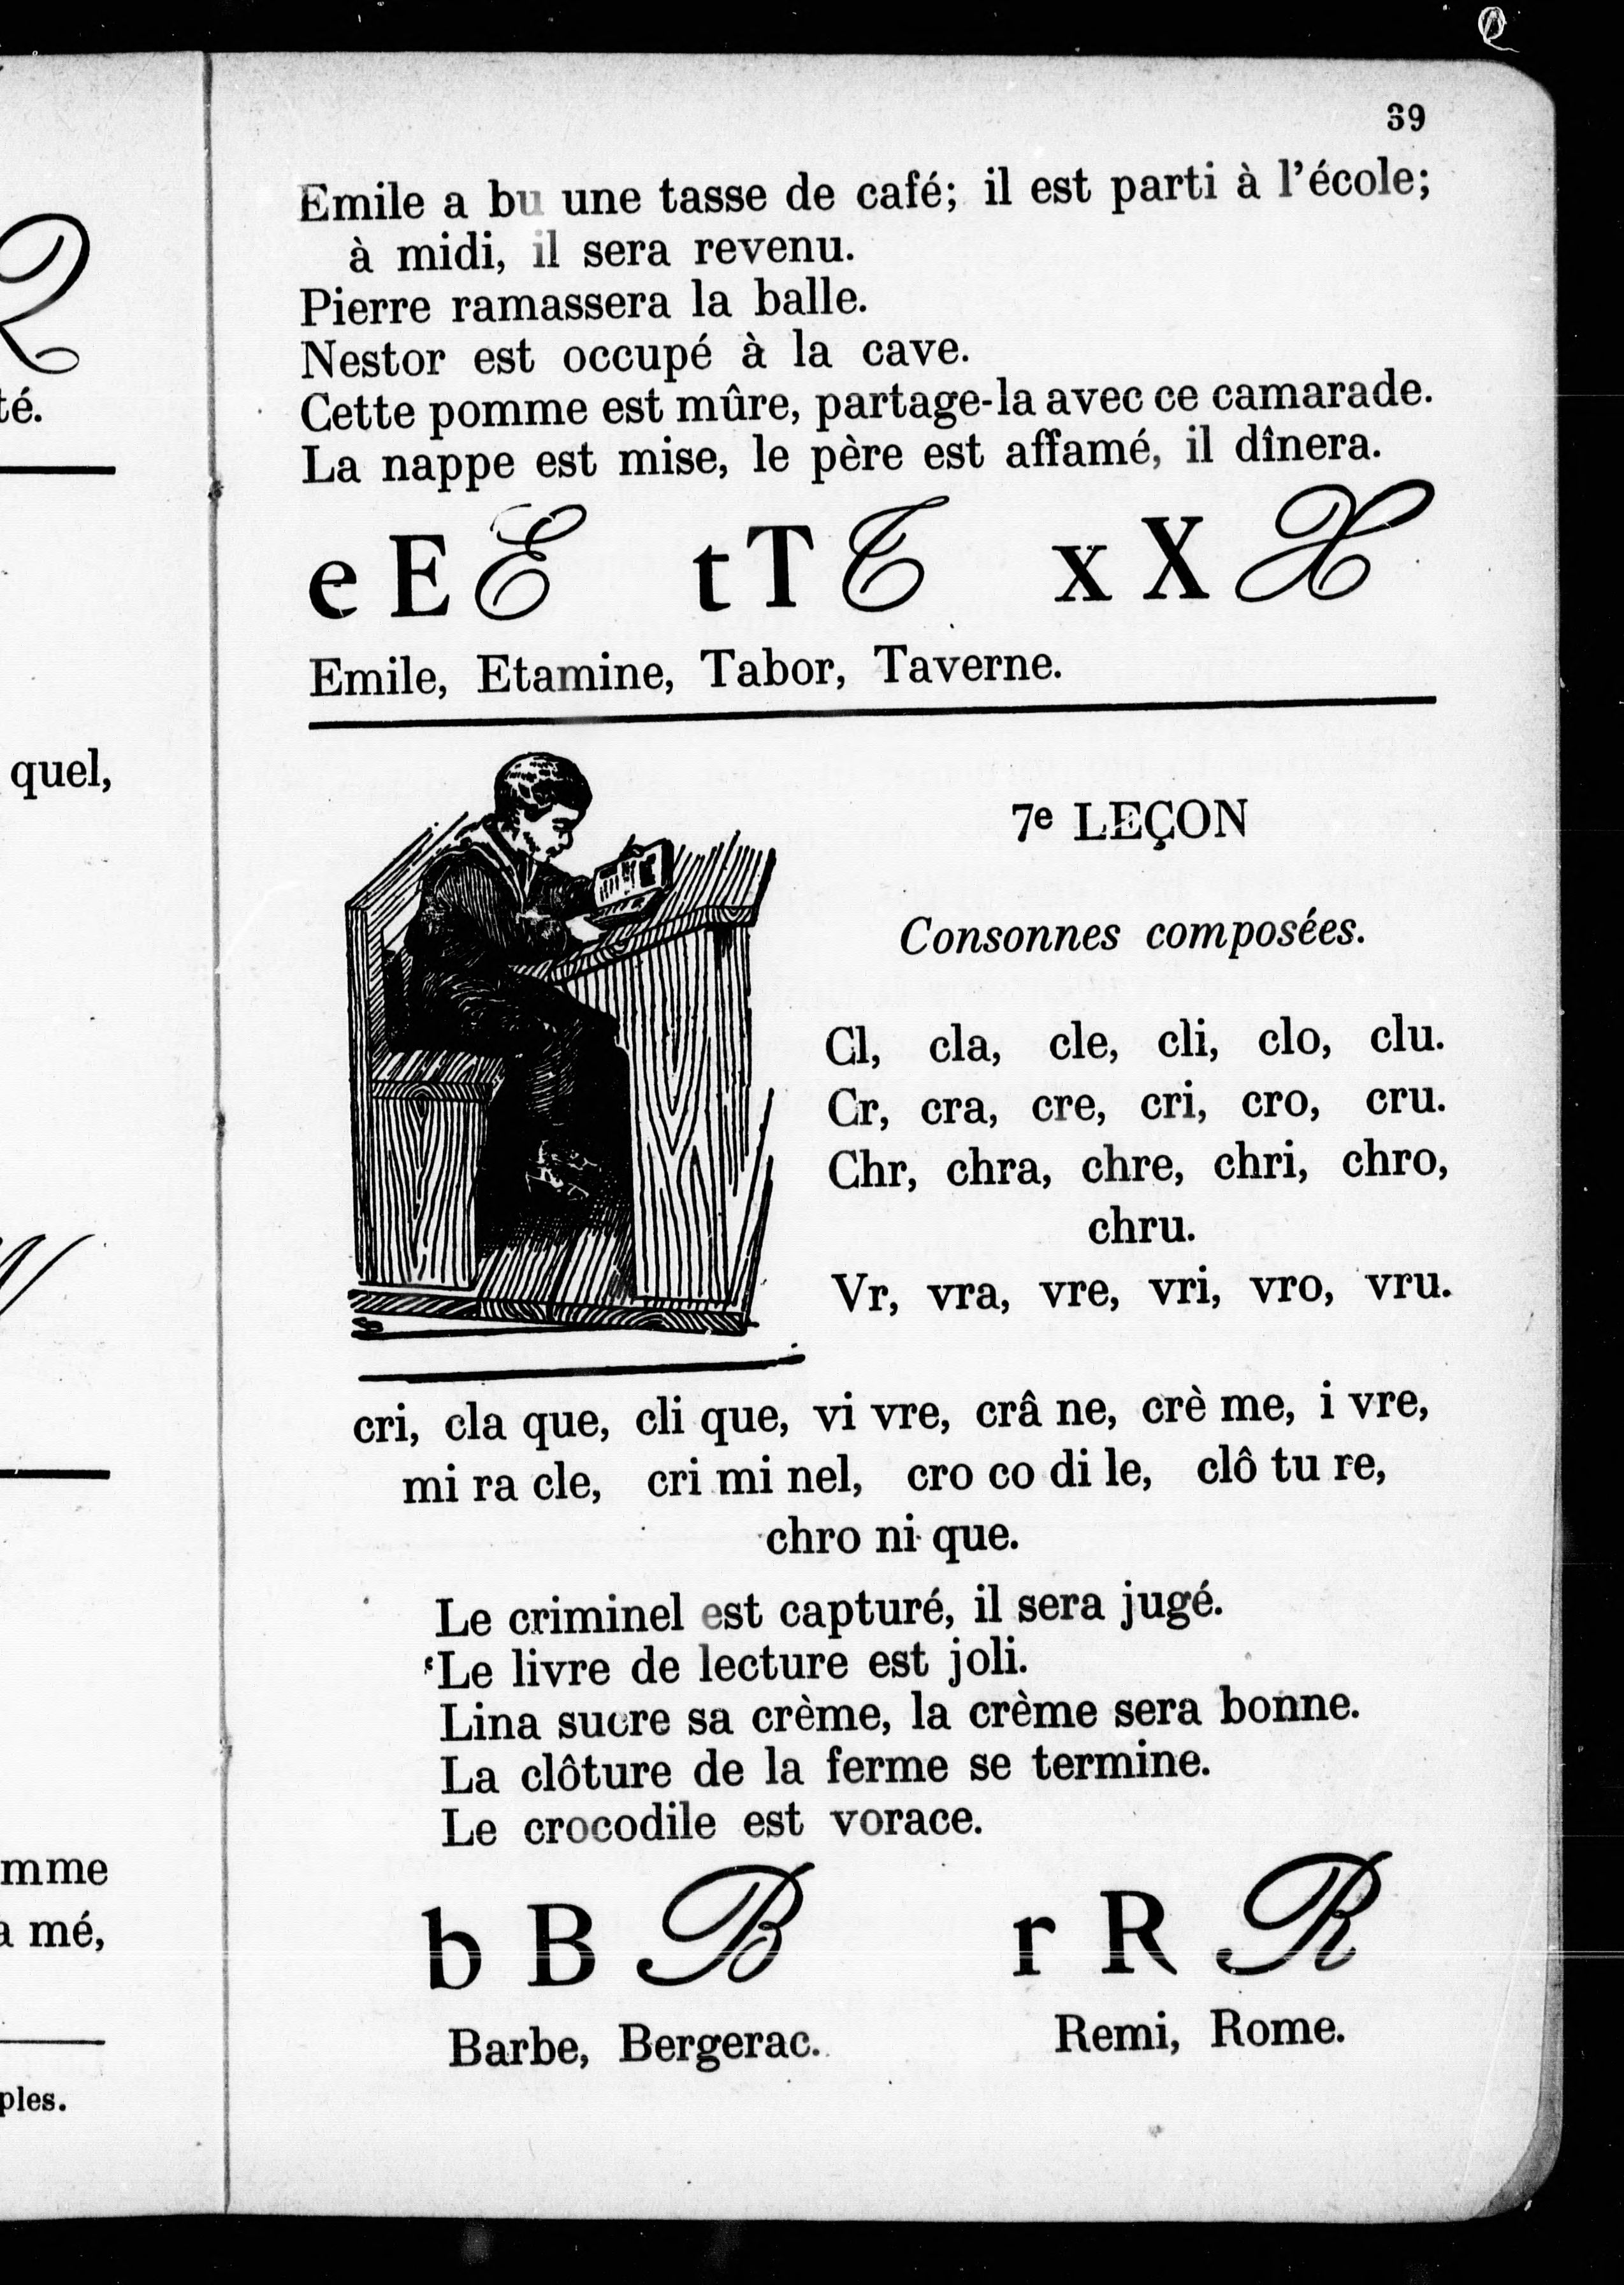 39
Emile a bu une tasse de café; il est parti à l'école;
à midi, il sera revenu.
Pierre ramassera la balle.
Nestor est occupé à la cave.
Cette pomme est mûre, partage-la avec ce camarade.
La nappe est mise, le père est affamé, il dînera.
e E E t T T x X X
Emile, Etamine, Tabor, Taverne.
7e LEÇON
Consonnes composées.
Cl, cla, cle, cli, clo, clu.
Cr, cra, cre, cri, cro, cru.
Chr, chra, chre, chri, chro,
chru.
Vr, vra, vre, vri, vro, vru.
cri, cla que, cli que, vi vre, crâ ne, crè me, i vre,
mi ra cle, cri mi nel, cro co di le, clô tu re,
chro ni que.
Le criminel est capturé, il sera jugé.
Le livre de lecture est joli.
Lina sucre sa crème, la crème sera bonne.
La clôture de la ferme se termine.
Le crocodile est vorace.
b B B r R R
Barbe, Bergerac. Remi, Rome.
té.
quel,
mé,